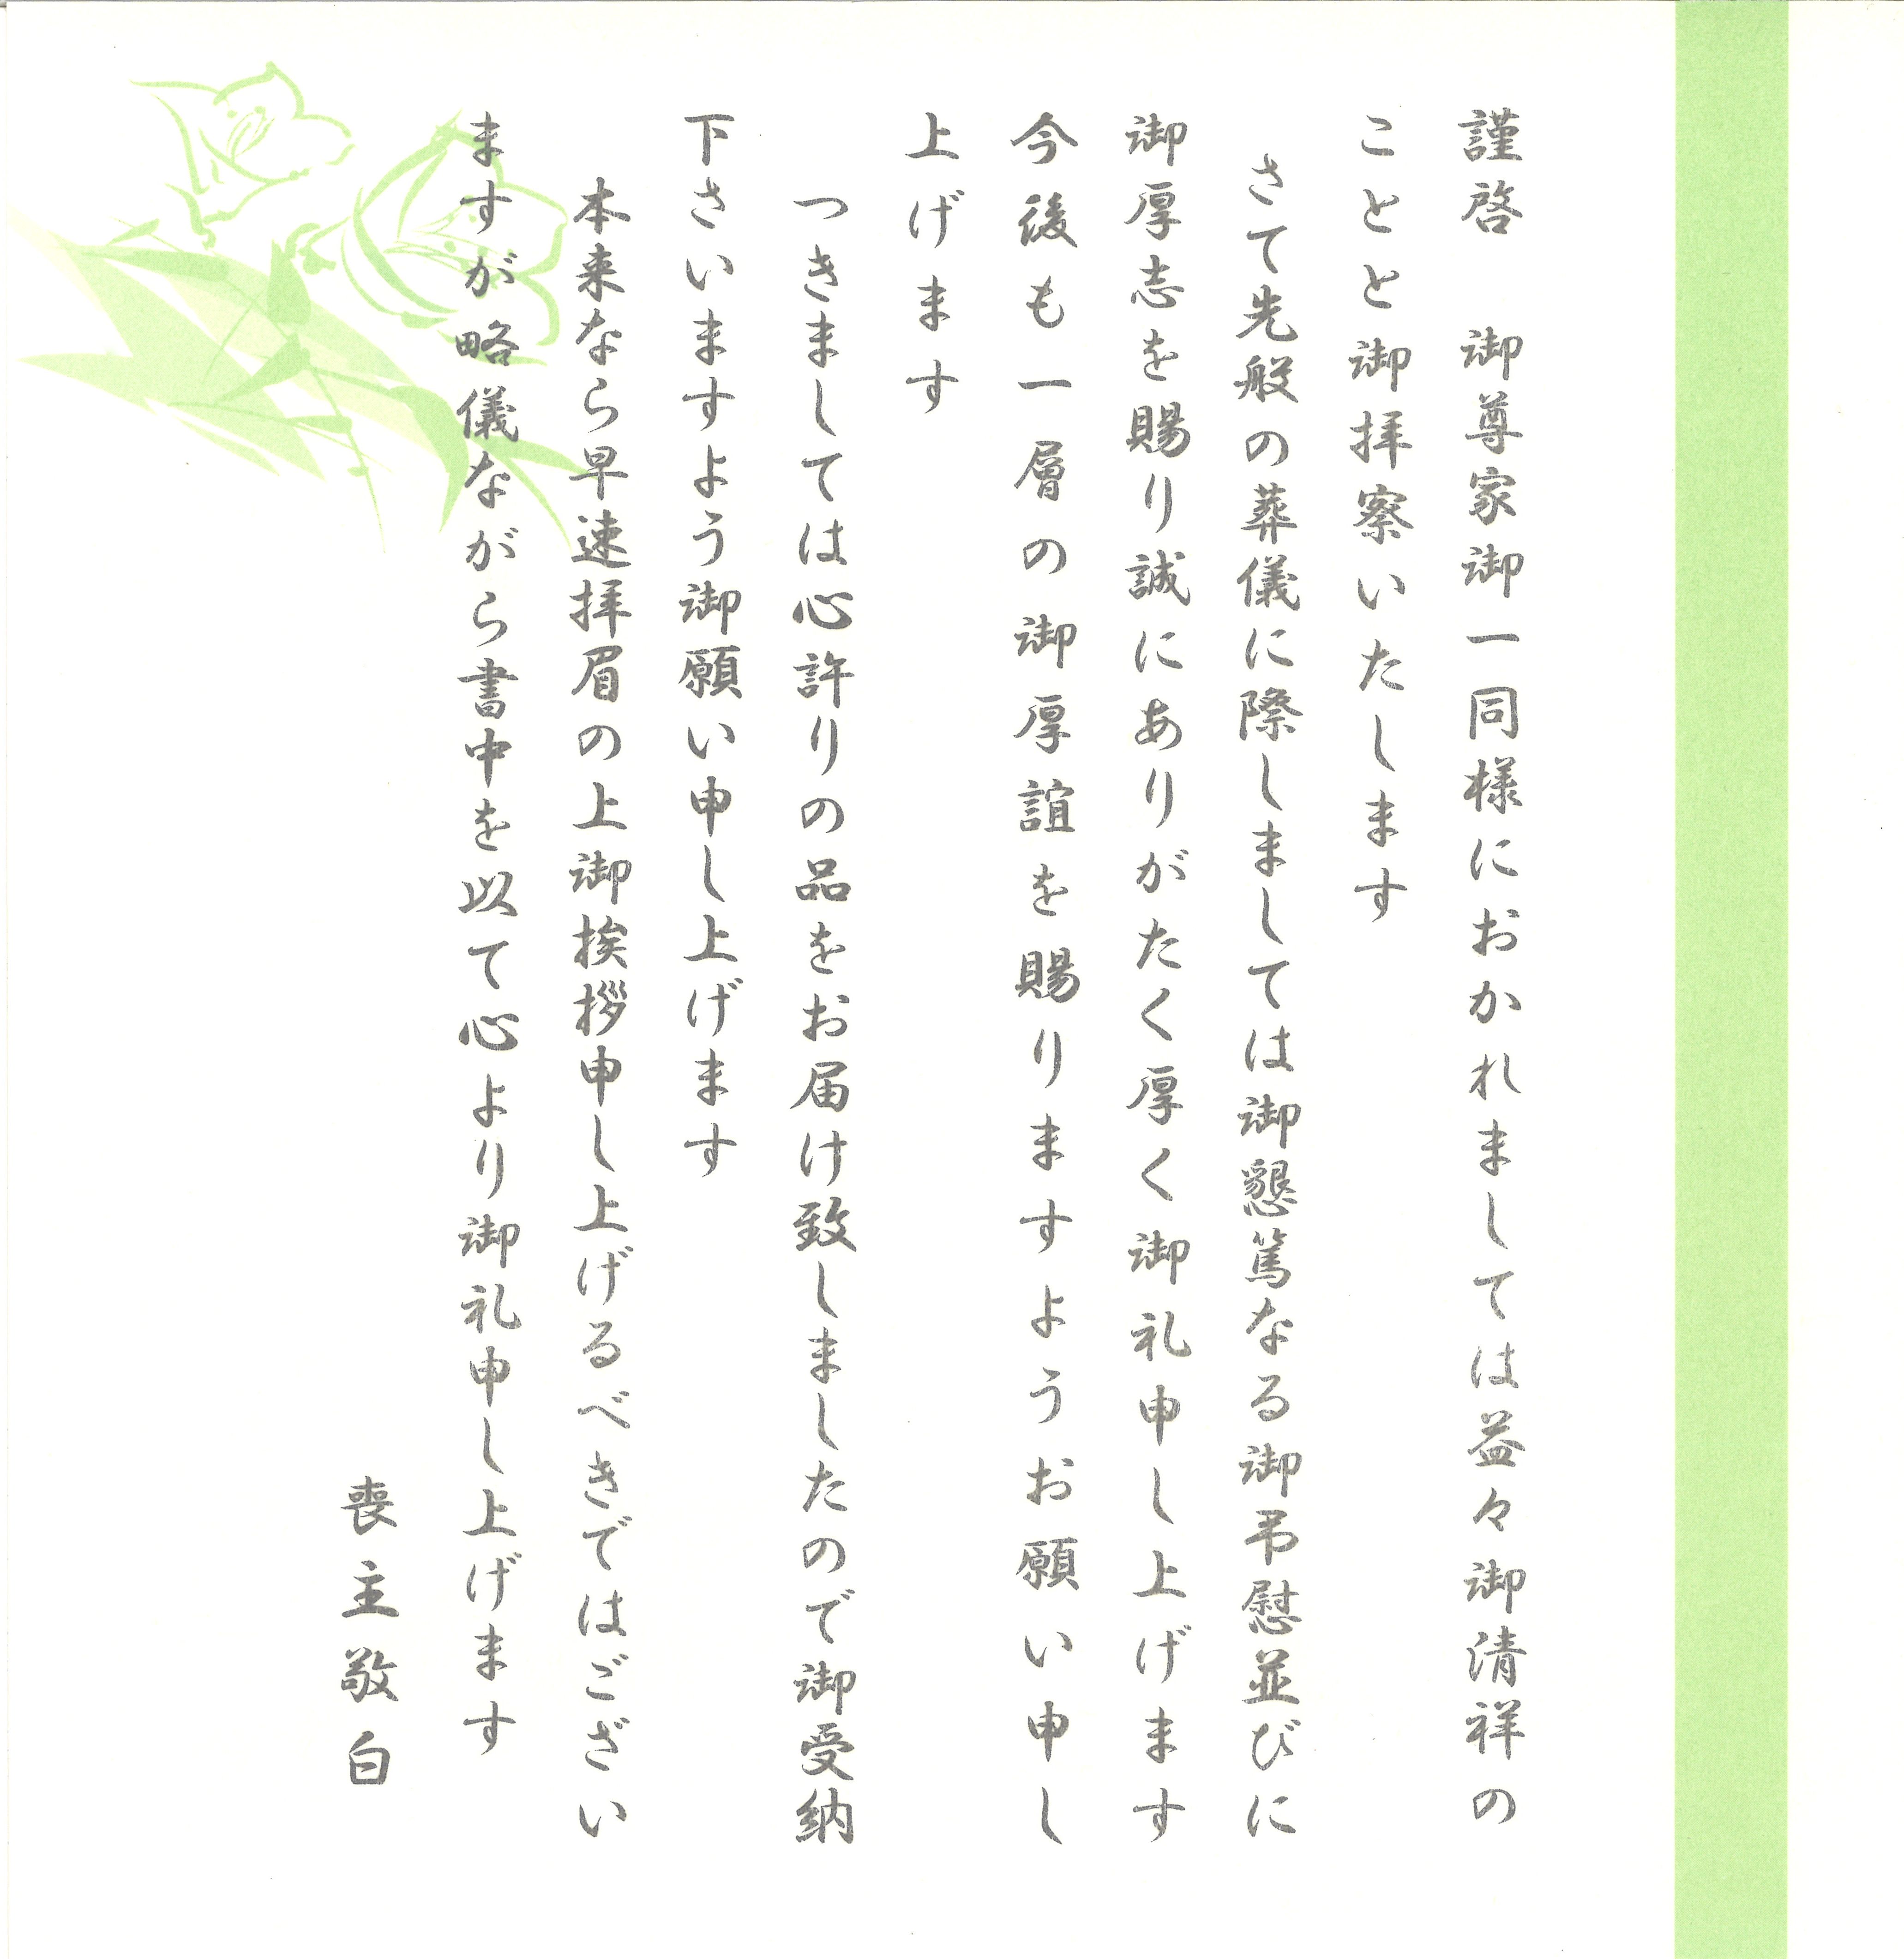 謹啓　御尊家御一同様におかれましては益々御清祥の
ことと御拝察いたします
さて先般の葬儀に際しましては御懇篤なる御弔慰並びに
御厚志を賜り誠にありがたく厚く御礼申し上げます
今後も一層の御厚誼を賜りますようお願い申し
上げます
つきましては心許りの品をお届け致しましたので御受納
下さいますよう御願い申し上げます
本来なら早速拝眉の上御挨拶申し上げるべきではござい
ますが略儀ながら書中を以て心より御礼申し上げます
喪主敬白